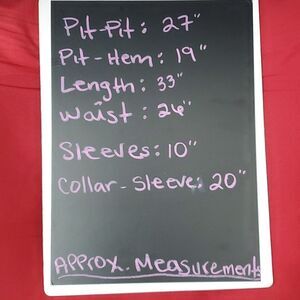 Pit-Pit: 27"
Pit-Hem: 19"
Length: 33"
Waist: 26"
Sleeves: 10"
Collar-Sleeve: 20"
Approx. Measurements